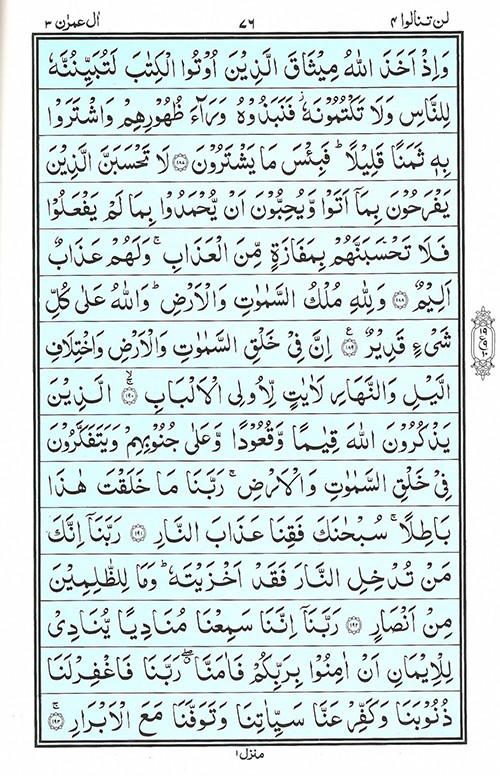 لن تنالوا ٤ ٧٦ اٰل عمرٰن ٣
وَاِذۡ اَخَذَ اللّٰهُ مِيۡثَاقَ الَّذِيۡنَ اُوۡتُوا الۡكِتٰبَ لَتُبَيِّنُنَّهٗ
لِلنَّاسِ وَلَا تَكۡتُمُوۡنَهٗ ۫ فَنَبَذُوۡهُ وَرَآءَ ظُهُوۡرِهِمۡ وَاشۡتَرَوۡا
بِهٖ ثَمَنًا قَلِيۡلًا ؕ فَبِئۡسَ مَا يَشۡتَرُوۡنَ ﴿۱۸۷﴾ لَا تَحۡسَبَنَّ الَّذِيۡنَ
يَفۡرَحُوۡنَ بِمَاۤ اَتَوْا وَّيُحِبُّوۡنَ اَنۡ يُّحۡمَدُوۡا بِمَا لَمۡ يَفۡعَلُوۡا
فَلَا تَحۡسَبَنَّهُمۡ بِمَفَازَةٍ مِّنَ الۡعَذَابِ ۚ وَلَهُمۡ عَذَابٌ
اَلِيۡمٌ ﴿۱۸۸﴾ وَلِلّٰهِ مُلۡكُ السَّمٰوٰتِ وَالۡاَرۡضِ ؕ وَاللّٰهُ عَلٰى كُلِّ
شَىۡءٍ قَدِيۡرٌ ﴿۱۸۹﴾ ع اِنَّ فِىۡ خَلۡقِ السَّمٰوٰتِ وَالۡاَرۡضِ وَاخۡتِلَافِ
الَّيۡلِ وَالنَّهَارِ لَاٰيٰتٍ لِّاُولِى الۡاَلۡبَابِ ﴿۱۹۰﴾ ۚۙ الَّذِيۡنَ
يَذۡكُرُوۡنَ اللّٰهَ قِيٰمًا وَّقُعُوۡدًا وَّعَلٰى جُنُوۡبِهِمۡ وَيَتَفَكَّرُوۡنَ
فِىۡ خَلۡقِ السَّمٰوٰتِ وَالۡاَرۡضِ ۚ رَبَّنَا مَا خَلَقۡتَ هٰذَا
بَاطِلًا ۚ سُبۡحٰنَكَ فَقِنَا عَذَابَ النَّارِ ﴿۱۹۱﴾ رَبَّنَاۤ اِنَّكَ
مَنۡ تُدۡخِلِ النَّارَ فَقَدۡ اَخۡزَيۡتَهٗ ؕ وَمَا لِلظّٰلِمِيۡنَ
مِنۡ اَنۡصَارٍ ﴿۱۹۲﴾ رَبَّنَاۤ اِنَّنَا سَمِعۡنَا مُنَادِيًا يُّنَادِىۡ
لِلۡاِيۡمَانِ اَنۡ اٰمِنُوۡا بِرَبِّكُمۡ فَاٰمَنَّا ۖ رَبَّنَا فَاغۡفِرۡ لَنَا
ذُنُوۡبَنَا وَكَفِّرۡ عَنَّا سَيِّاٰتِنَا وَتَوَفَّنَا مَعَ الۡاَبۡرَارِ ﴿۱۹۳﴾ ۚ
منزل ١